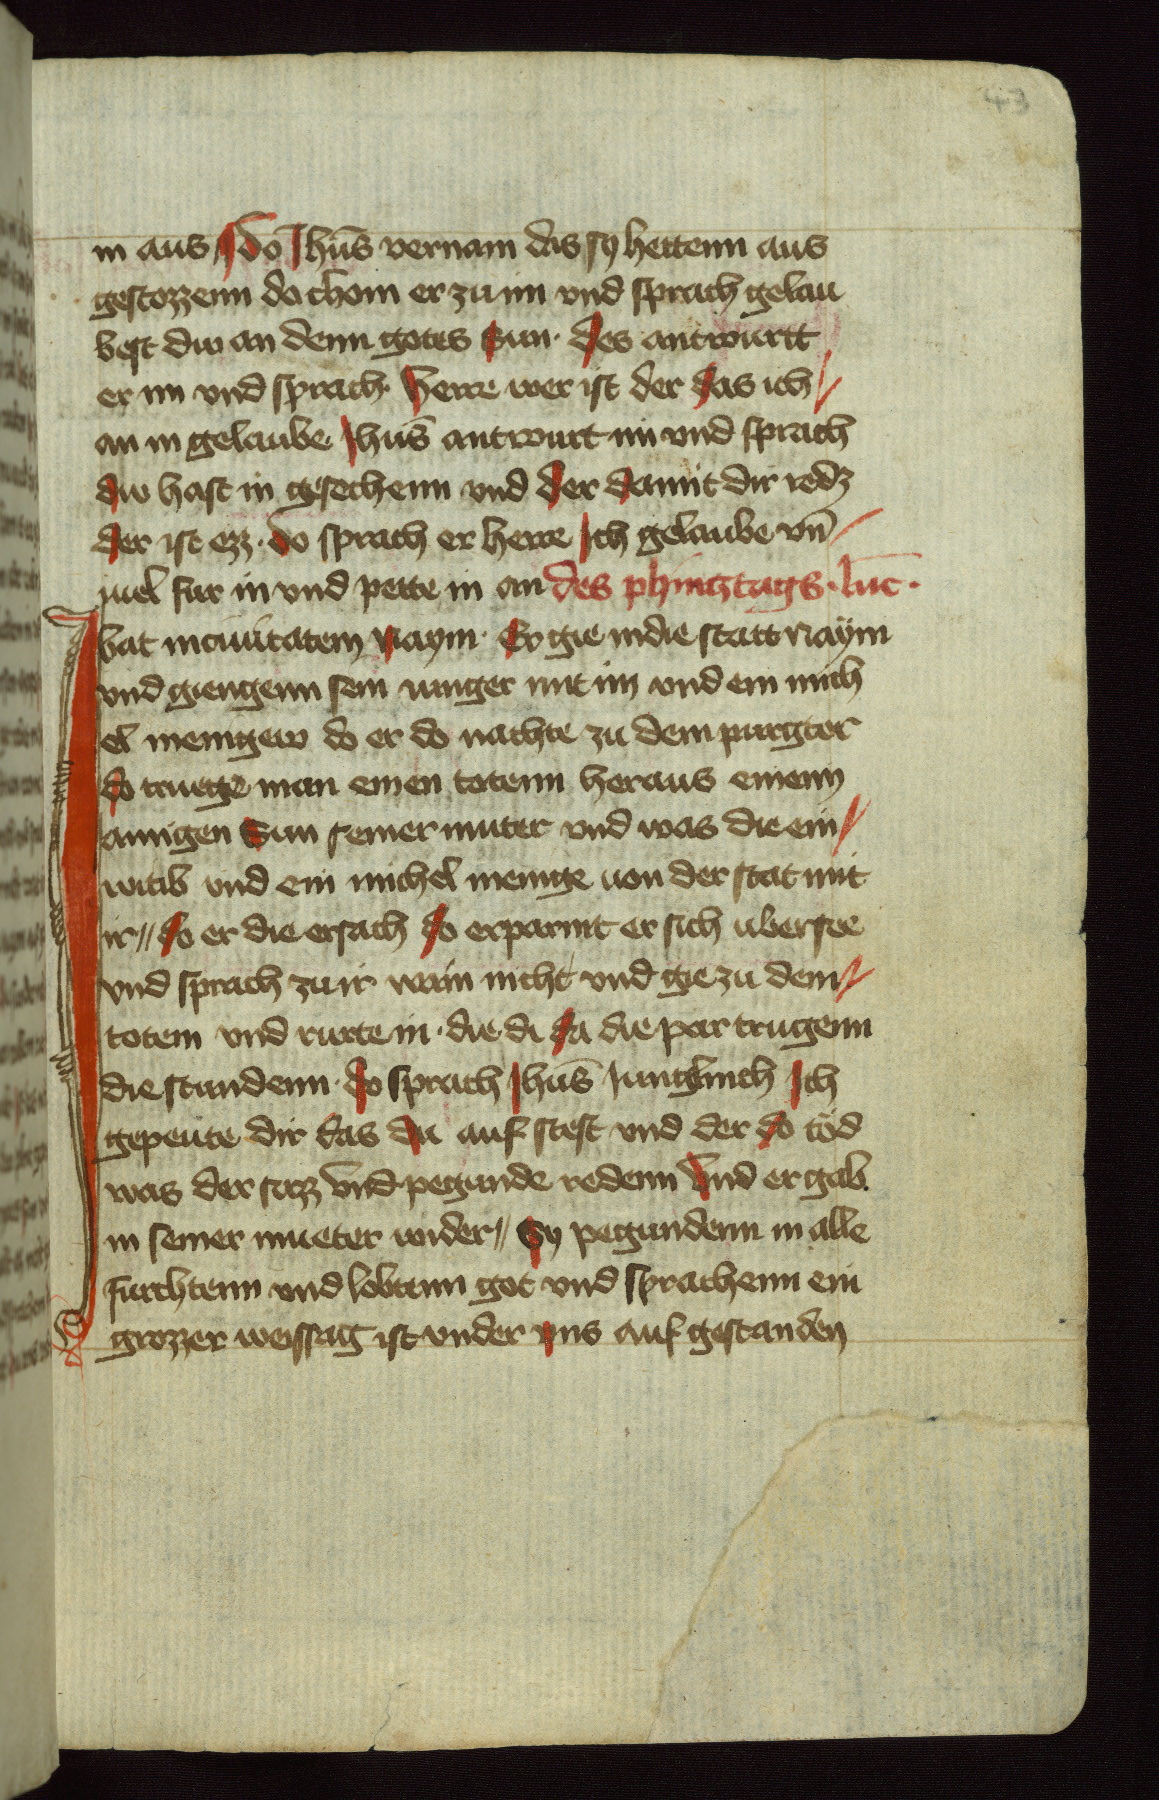 43
in aus do Jhūs vernam das sy hettenn aus
gestozzenn do chom er zu im vnd sprach gelau
best diw an denn gotes Sun · des antwurtt
er im vnd sprach · Herre wer ist der das ich
an in gelaube Jhūs antwurt im vnd sprach
diw hast in gesechenn vnd der da mit dir redz
der ist ezz · do sprach er herre Ich gelaube vn̄
uiel fur in vnd pette in an des phincztags · luc̄ ·
Ibat in ciuitatem Naym · Er gie in die statt Naÿm
vnd giengenn sein iunger mit im vnd ein mich
el menigew do er do nachte zu dem purgtor
do truege man einen totenn heraus einenn
ainigen Sun seiner muter vnd was die ein
witib vnd ein michel menige von der stat mit
ir // do er die ersach do erparmt er sich uber see
vnd sprach zu ir wain nicht vnd gie zu dem
totem vnd rurte in · die di da die par trugenn
die stundenn · do sprach Jhūs Jungling Ich
gepeute dir das du auf stest vnd der do töd
was der sazz vnd pegunde redenn Vnd er gab
in seiner mueter wider // Sy pegundenn in alle
furchtenn vnd lobtenn got vnd sprachenn ein
grozzer weissag ist vnder vns auf gestanden